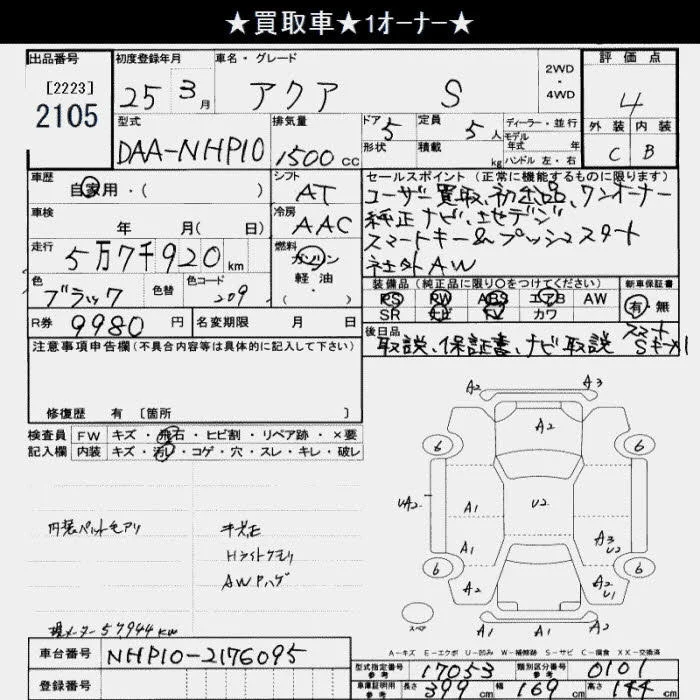 ★買取車★1オーナー★
出品番号 初度登録年月 車名・グレード 2WD・4WD 評価点
[2223]
2105
25 3月 アクア S 4
型式 排気量 ドア 5 定員 5人 ディーラー・並行
モデル年式 年
外装 内装
DAA-NHP10 1500cc 形状 積載 kg ハンドル 左・右 C B
車歴 シフト セールスポイント(正常に機能するものに限ります)
自家用・( ) AT ユーザー買取、初出品、ワンオーナー
車検 冷房 純正ナビ、地デジ
年 月( 日) AAC スマートキー&プッシュスタート
走行 燃料 社外AW
5万7千920km ガソリン
軽油
( )
色 色替 色コード 装備品(純正品に限り○をつけてください) 新車保証書
ブラック 209 PS PW ABS エアB AW 有・無
SR ナビ TV カワ
R券 9980円 名変期限 月 日 後日品
取説、保証書、ナビ取説 スマートSキー×1
注意事項申告欄(不具合内容等は具体的に記入して下さい)
修復歴 有 [箇所 ]
検査員記入欄 FW キズ・飛石・ヒビ割・リペア跡・×要
内装 キズ・汚れ・コゲ・穴・スレ・キレ・破レ
A2 A3
A2
6 6
UA2 A1 U2
A1 A3 U2
6 6
A2 A2 U1
スペア
A1
内装 キズ小
Hライトクモリ
AWハゲ
現メーター 57944km
A-キズ E-エクボ U-凹み W-補修跡 S-サビ C-腐食 XX-交換済
車台番号 NHP10-2176095
登録番号
型式指定番号参考 17053 類別区分番号参考 0101
車庫証明用参考 長さ 399cm 幅 169cm 高さ 144cm